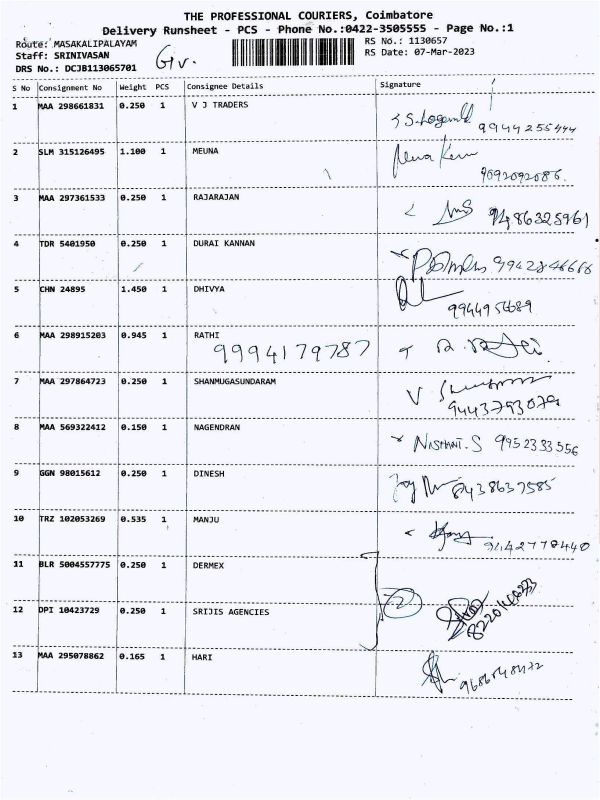 THE PROFESSIONAL COURIERS, Coimbatore
Delivery Runsheet - PCS - Phone No.:0422-3505555 - Page No.:1
Route: MASAKALIPALAYAM
RS No.: 1130657
Staff: SRINIVASAN
RS Date: 07-Mar-2023
DRS No.: DCJB113065701
S No Consignment No Weight PCS Consignee Details Signature
1 MAA 298661831 0.250 1 V J TRADERS
9944255444
2 SLM 315126495 1.100 1 MEUNA
9092092086.
3 MAA 297361533 0.250 1 RAJARAJAN
9486325961
4 TDR 5401950 0.250 1 DURAI KANNAN
9942846666
5 CHN 24895 1.450 1 DHIVYA
9944956689
6 MAA 298915203 0.945 1 RATHI
9994179787
7 MAA 297864723 0.250 1 SHANMUGASUNDARAM
9443793079
8 MAA 569322412 0.150 1 NAGENDRAN
NISHANT.S 9952333556
9 GGN 98015612 0.250 1 DINESH
8438637585
10 TRZ 102053269 0.535 1 MANJU
9442778440
11 BLR 5004557775 0.250 1 DERMEX
2
12 DPI 10423729 0.250 1 SRIJIS AGENCIES
13 MAA 295078862 0.165 1 HARI